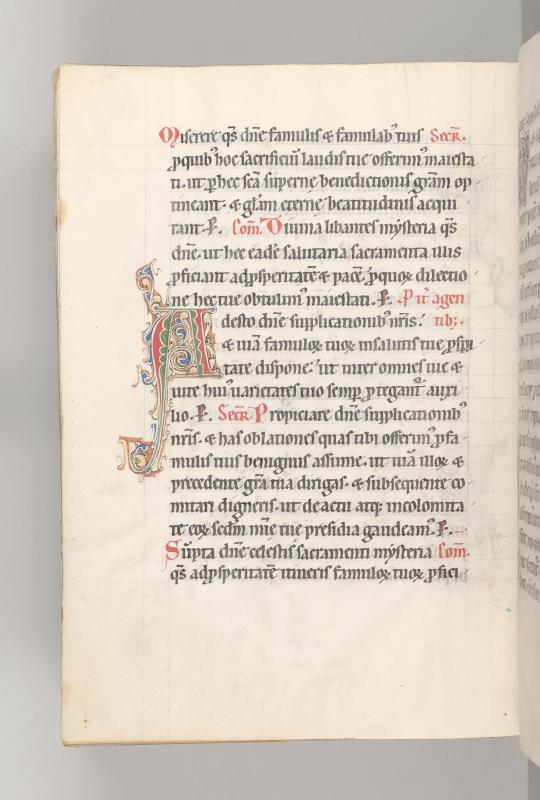 Miserere qs̄ dn̄e famulis & famulab' tuis Secr̄.
p quib' hoc sacrificiū laudis tue offerim' maiesta
ti. ut p hec scā superne benedictionis grām op
tineant. & glām eterne beatitudinis acqui
rant. P. Com̄. Diuina libantes mysteria qs̄
dn̄e. ut hec eadē salutaria sacramenta illis
pficiant ad psperitatē & pacē p quoꝝ dilectio
ne hec tue obtulim' maiestati. P. P it' agen
Adesto dn̄e supplicationib' nr̄is. tib;.
& uiā famuloꝝ tuoꝝ in salutis tue pspi
tate dispone. ut inter omnes uie &
uite hui' uarietates tuo semp ptegant' auxi
lio. P. Secr̄. Propiciare dn̄e supplicationib'
nr̄is. & has oblationes quas tibi offerim' p fa
mulis tuis benignus assume. ut uiā illoꝝ &
precedente gr̄a tua dirigas. & subsequente co
mitari digneris. ut de actu atq; incolomita
te eoꝝ sedm̄ mīe tue presidia gaudeam'. P.
Sūpta dn̄e celestis sacramenti mysteria Com̄.
qs̄ ad psperitatē itineris famuloꝝ tuoꝝ pfici